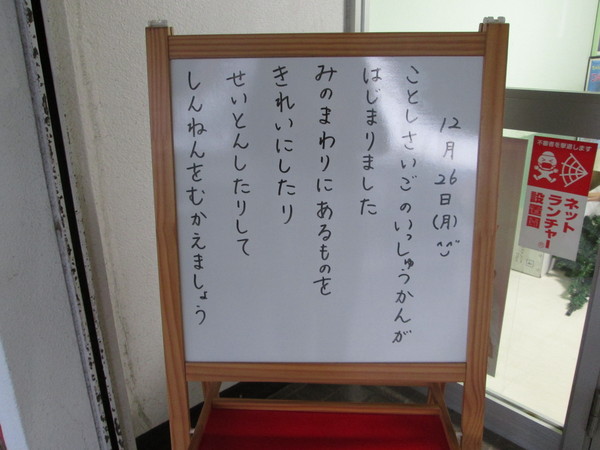 12月26日(月)^^
ことしさいごのいっしゅうかんが
はじまりました
みのまわりにあるものを
きれいにしたり
せいとんしたりして
しんねんをむかえましょう
不審者を撃退します
ネット
ランチャー
設置園